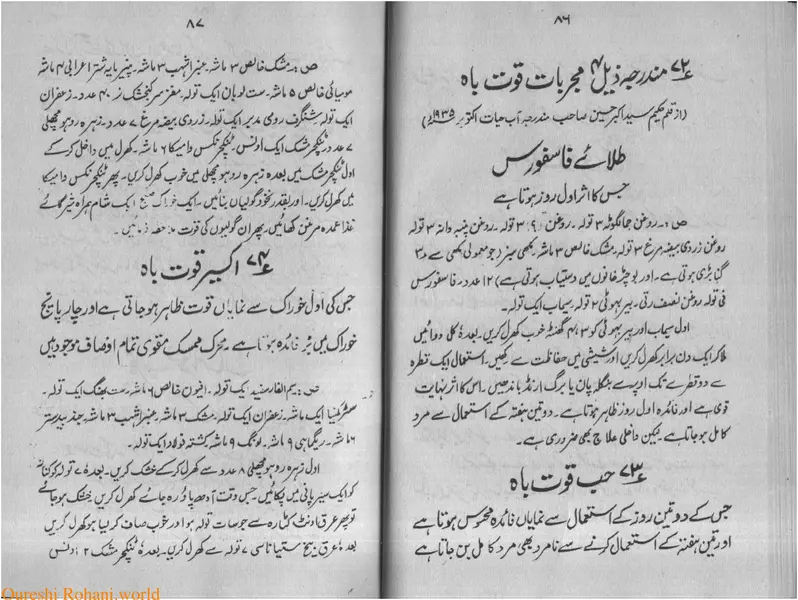 ۸۶
۷۲ مندرجہ ذیل ۴ مجربات قوت باہ
(از قلم حکیم سید اکبر حسین صاحب مندرجہ آب حیات اکتوبر ۱۹۳۵ء)
طلائے فاسفورس
جس کا اثر اول روز ہوتا ہے
ص:۔ روغن جمالگوٹہ ۳ تولہ۔ روغن (؟) ۳ تولہ۔ روغن پنبہ دانہ ۳ تولہ
روغن زردی بیضہ مرغ ۳ تولہ۔ مشک خالص ۳ ماشہ۔ مکھی سبز (جو معمولی مکھی سے
گنا بڑی ہوتی ہے۔ اور بوچڑ خانوں میں دستیاب ہوتی ہے) ۱۲ عدد۔ فاسفورس
فی تولہ روغن نصف رتی۔ بیر بہوٹی ۲ تولہ۔ سیماب ایک تولہ۔
اول سیماب اور بیر بہوٹی کو ۳، ۴ گھنٹہ خوب کھرل کریں۔ بعدہٗ کل دوائیں
ملا کر ایک دن برابر کھرل کریں اور شیشی میں حفاظت سے رکھیں۔ استعمال ایک قطرہ
سے دو قطرے تک اوپر سے بنگلہ پان یا برگ ارنڈ باندھیں۔ اس کا اثر نہایت
قوی ہے اور فائدہ اول روز ظاہر ہوتا ہے۔ دو تین ہفتہ کے استعمال سے مرد
کامل ہو جاتا ہے لیکن داخلی علاج بھی ضروری ہے۔
۷۳ حب قوت باہ
جس کے دو تین روز کے استعمال سے نمایاں فائدہ محسوس ہوتا ہے
اور تین ہفتہ کے استعمال کرنے سے نامرد بھی مرد کامل بن جاتا ہے
۸۷
ص:۔ مشک خالص ۳ ماشہ۔ عنبر اشہب ۳ ماشہ۔ پنیر مایہ شتر اعرابی ۴ ماشہ
مومیائی خالص ۵ ماشہ۔ ست لوبان ایک تولہ۔ مغز سر کنجشک نر ۴۰ عدد۔ زعفران
ایک تولہ۔ شنگرف رومی مدبر ایک تولہ۔ زردی بیضہ مرغ ۷ عدد۔ زہرہ روہو مچھلی
۷ عدد۔ ٹنکچر مشک ایک اونس۔ ٹنکچر نکس وامیکا ۶ ماشہ۔ کھرل میں داخل کر کے
اول ٹنکچر مشک میں بعدہ زہرہ روہو مچھلی میں خوب کھرل کریں۔ پھر ٹنکچر نکس وامیکا
میں کھرل کریں۔ اور بقدر نخود گولیاں بنائیں۔ ایک خوراک صبح ایک شام ہمراہ شیر گائے
غذا عمدہ مرغن کھائیں۔ پھر ان گولیوں کی قوت ملاحظہ فرمائیں۔
۷۴ اکسیر قوت باہ
جس کی اول خوراک سے نمایاں قوت ظاہر ہو جاتی ہے اور چار پانچ
خوراک میں پُر فائدہ ہوتا ہے۔ محرک ممسک مقوی تمام اوصاف موجود ہیں
ص:۔ سم الفار سفید یک تولہ۔ افیون خالص ۶ ماشہ۔ ست بھنگ ایک تولہ۔
ایک ماشہ۔ زعفران ایک تولہ۔ مشک ۳ ماشہ۔ عنبر اشہب ۳ ماشہ۔ جند بیدستر
۶ ماشہ۔ ریگماہی ۹ ماشہ۔ لونگ ۹ ماشہ۔ کشتہ فولاد ایک تولہ۔
اول زہرہ روہو مچھلی ۸ عدد سے کھرل کر کے خشک کریں۔ بعدہٗ ۷ تولہ
کو ایک سیر پانی میں پکائیں۔ جس وقت آدھ پاؤ رہ جائے کھرل کریں۔ خشک ہو جائے
تو پھر عرق اونٹ کٹارہ سے جو سات تولہ ہو اور خوب صاف کر لیا ہو کھرل کریں
بعدہٗ عرق بیخ ستیاناسی ۷ تولہ سے کھرل کریں۔ بعدہٗ ٹنکچر مشک ۲ اونس
Qureshi Rohani.world